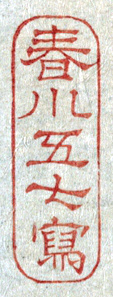 春川五七寫